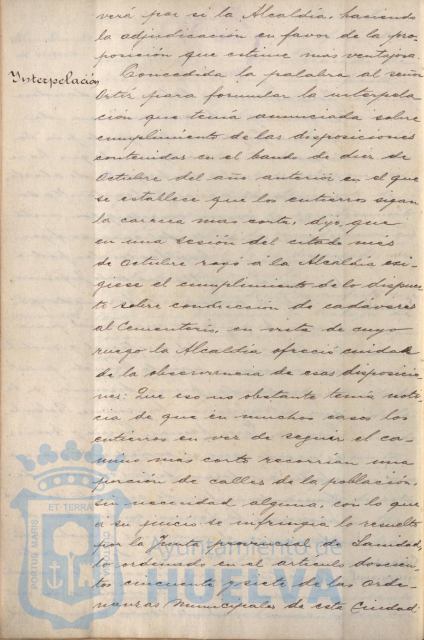 verá por si la Alcaldía, haciendo
la adjudicación en favor de la pro-
posición que estime mas ventajosa.
Interpelación
Concedida la palabra al señor
Ortíz para formular la interpela
ción que tenía anunciada sobre
cumplimiento de las disposiciones
contenidas en el bando de diez de
Octubre del año anterior en el que
se establece que los entierros sigan
la carrera mas corta, dijo, que
en una sesión del citado mes
de Octubre rogó á la Alcaldía exi-
giese el cumplimiento de lo dispues-
to sobre conducción de cadáveres
al Cementerio, en vista de cuyo
ruego la Alcaldía ofreció cuidar
de la observancia de esas disposicio
nes: Que eso no obstante tenía noti-
cia de que en muchos casos los
entierros en vez de seguir el ca-
mino más corto recorrían una
porción de calles de la población,
sin necesidad alguna, con lo que
a su juicio se infringía lo resuelto
por la Junta provincial de Sanidad,
lo ordenado en el artículo doscien-
tos cincuenta y siete de las Orde-
nanzas Municipales de esta Ciudad
PORTUS MARIS
ET·TERRÆ
Ayuntamiento de
HUELVA